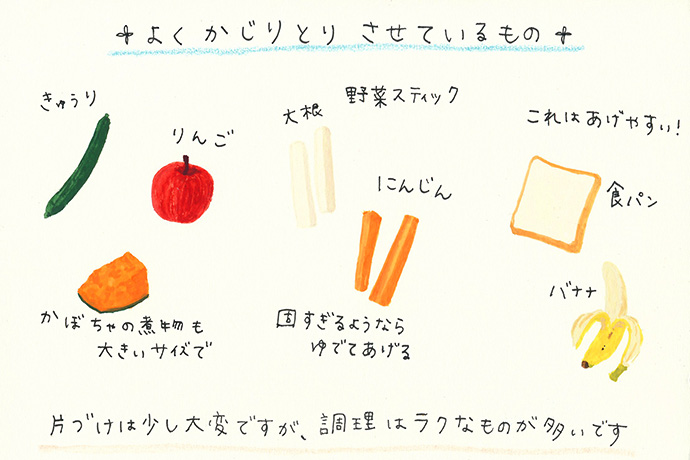 よくかじりとりさせているもの
きゅうり
りんご
野菜スティック
大根
にんじん
これはあげやすい!
食パン
バナナ
かぼちゃの煮物も
大きいサイズで
固すぎるようなら
ゆでてあげる
片づけは少し大変ですが、調理はラクなものが多いです